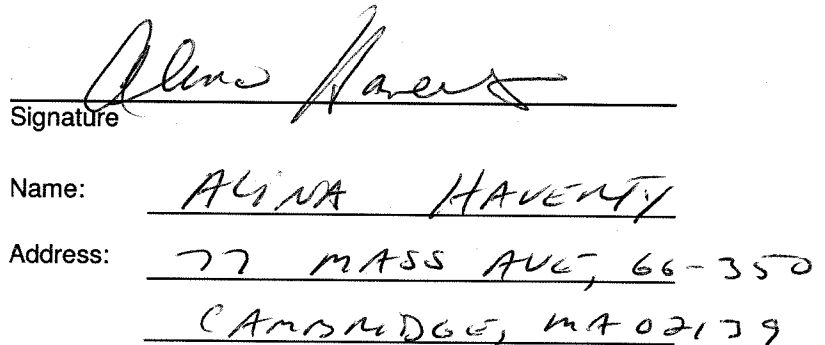 Alina Haverty
Signature
Name: ALINA HAVERTY
Address: 77 MASS AVE, 66-350
CAMBRIDGE, MA 02139